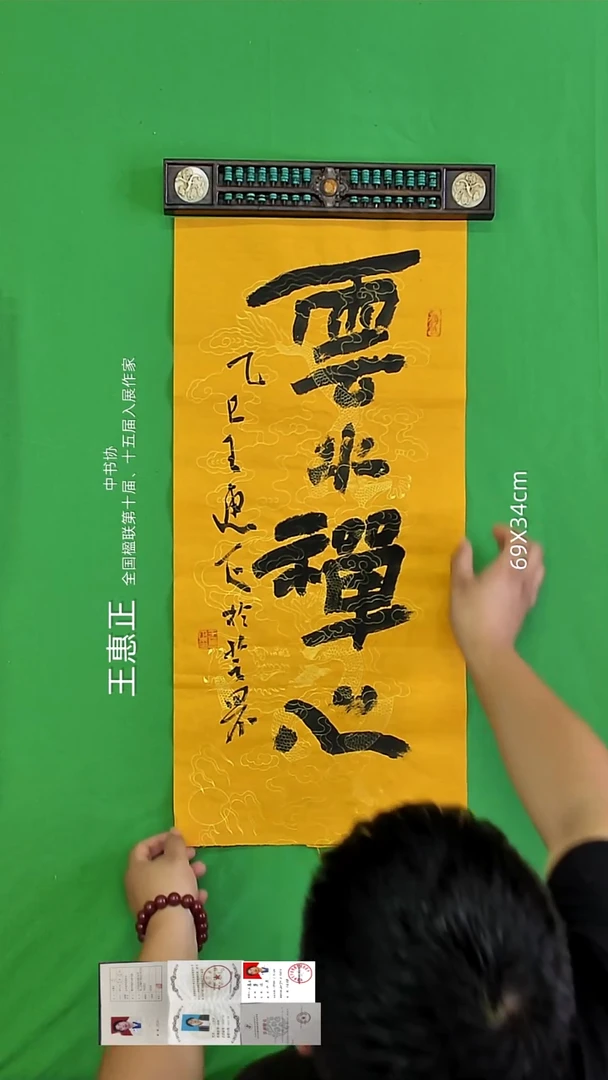 雲水禪心
乙巳王惠正於
中书协
全国楹联第十届、十五届入展作家
王惠正
69X34cm